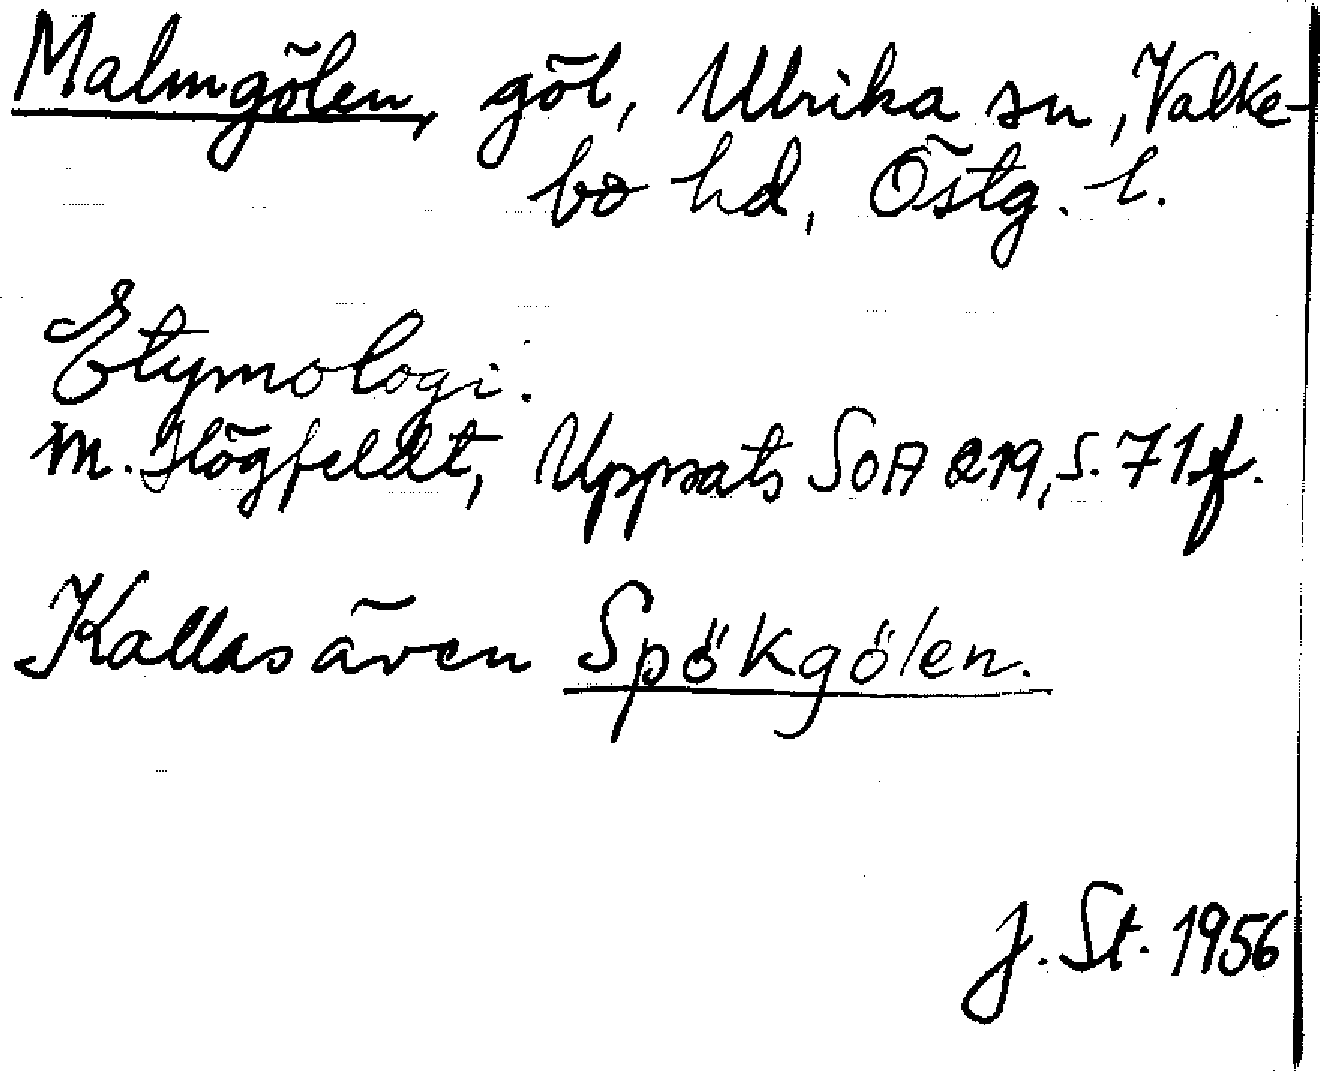 Malmgölen, göl, Ulrika sn, Valke-
bo hd, Östg. l.
Etymologi:
M. Högfeldt, Uppsats SOA 219, s. 71 f.
Kallas även Spökgölen.
J. St. 1956